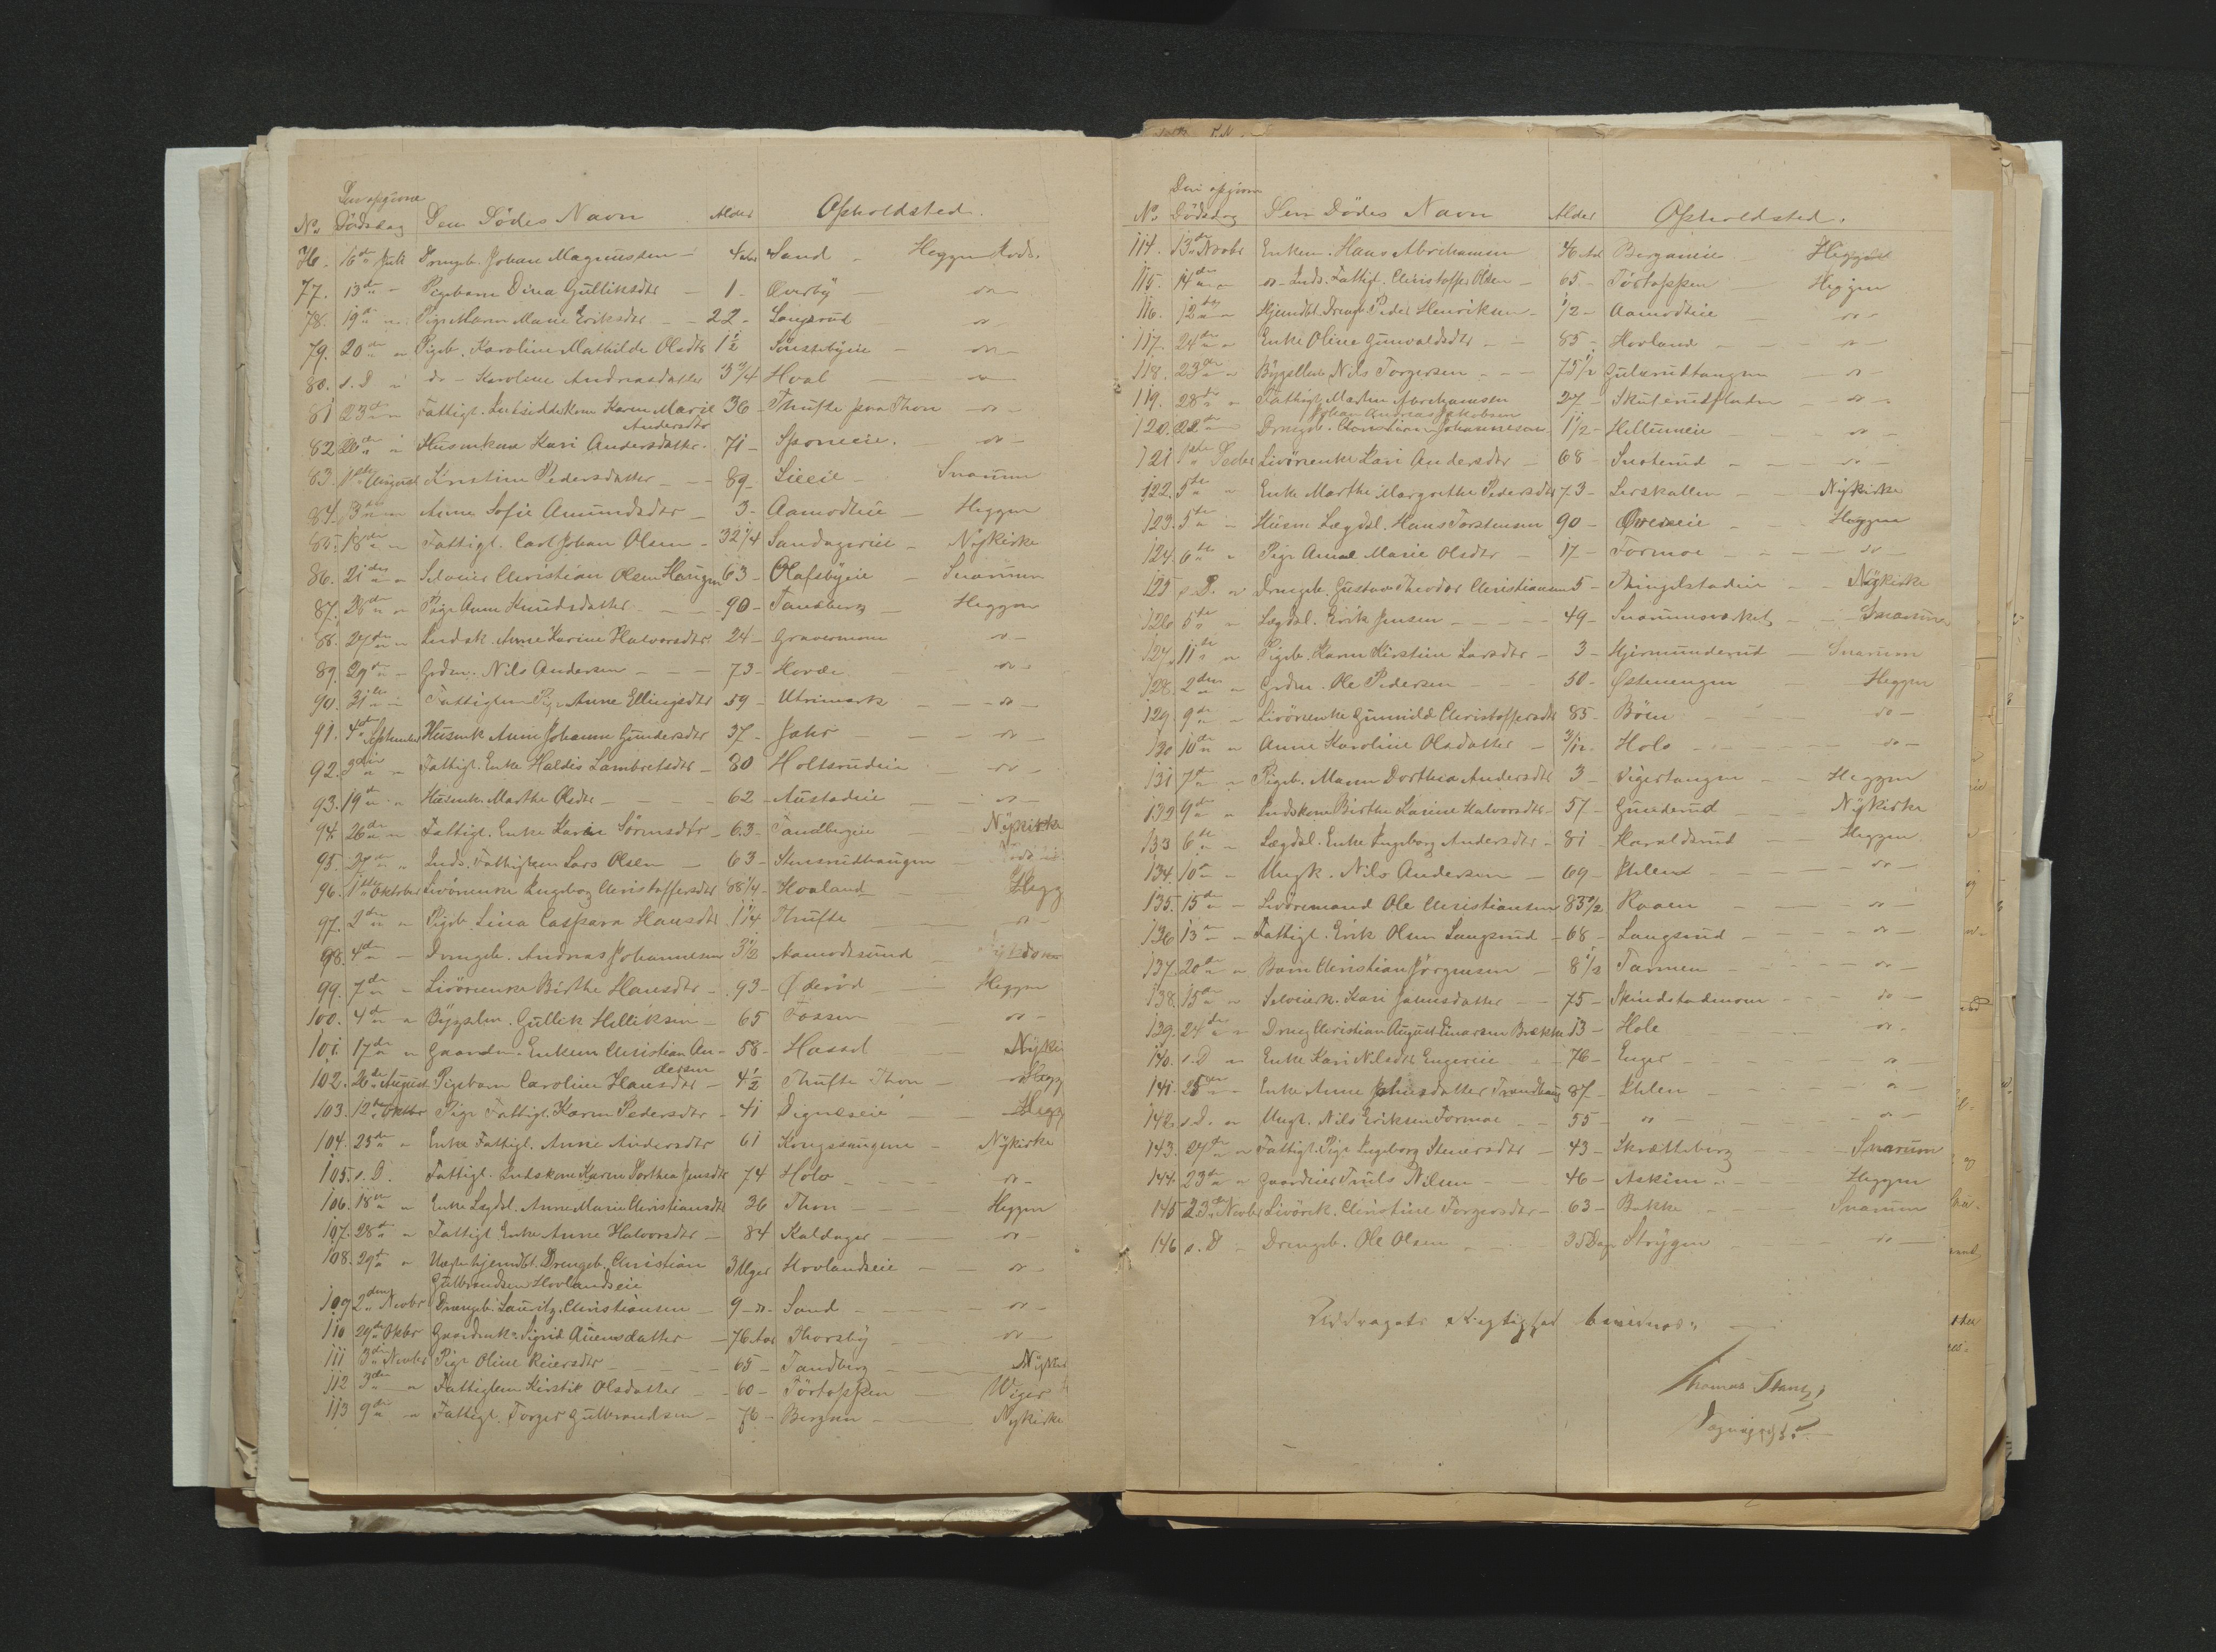 Den opgivne
No. Dödsdag Den Dödes Navn Alder Opholdsted.
76. 16de Juli Drengb. Johan Magnussen - 4 Aar Sand - Heggen
77. 13de - Pigebarn Dina Gulliksdtr - 1 - Overby - do -
78. 19de - Pige Maren Marie Eriksdtr - 22 - Langerud - do -
79. 20de - Pigeb. Karoline Mathilde Olsdtr 1 1/2 - do -
80. s. D - do - Karoline Andreasdatter 3 3/4 Hval - do -
81 23de - Fattigl. Karen Marie 36 - Thufte paa Thon - do -
Andersdtr
82 - Husmkone Kari Andersdatter - 71 - Sponeeie. - do -
83. 1ste August Kirstine Pedersdatter - 89 - Lieeie - Snarum
84. 3de - Anne Sofie Amundsdtr - 3 - Aamodteie - Heggen
85. 18de - Fattigl. Carl Johan Olsen - 32 1/4 - Nykirke
86. 21de - Christian Olsen Haugen 63 - Olafsbyeie - Snarum
87. 28de - Pige Anne Knudsdatter - 90 - Tandberg - Heggen
88. 27de - Indsk. Anne Karine Halvorsdtr. 24 - Gravermoen do -
89. 29de - Grdm. Nils Andersen - 73 - Hovde - do -
90. 31te - Fattiglem Pige Anne Ellingsdtr 59 - Utvimark - do -
91. 4de September Husmk Anne Johanne Gundersdtr 37 - Jahr - do -
92. 3die - Fattigl. Enke Haldis Lambretsdtr - 80 Holtsrudeie - do -
93. 19de - Husmk. Marthe Olsdtr - 62 - Austadeie - do -
94. 26de - Fattigl. Enke Karen Sörensdtr - 63 - Tandbergeie - Nykirke
95. 27de - Inds. Fattiglem Lars Olsen - 63 - Stensrudhaugen -
96. 1ste Oktober Livörenke Ingeborg Christoffersdtr 88 1/4 - Hovland - Hegg
97. 2den - Pigeb. Lina Caspara Hansdtr 1 1/4 Thufte - do -
98. 4de - Drengb. Andreas Johannesen 3 1/2 Aamodtsund -
99. 7de - Livörenke Birthe Hansdtr - 93 - Öderöd - Heggen
100. 4de - Gullik Helliksen - 65 Fossen - do -
101. 17de - Gaardm. Enkem Christian An- 58 - Hassel - Nyki
dersen
102. 26de August Pigebarn Caroline Hansdtr - 4 1/2 Thufte Thon - Hegg
103. 12te Oktbr Pige Fattigl. Karen Pedersdtr - 41 Digraseie - Hegg
104. 25de - Enke Fattigl. Anne Andersdtr 61 - Nykirke
105. s. D. Fattigl. Indskone Karen Dorthea Jensdtr 74 Holo - do -
106. 18de - Enke Lægdsl. Anne Marie Christiansdtr 36 Thon - Heggen
107. 28de - Fattigl. Enke Anne Halvorsdtr - 84 Kaldager - do -
108. 29de - Uægte hjemdbt. Drengeb. Christian 3 Uger Hovlandseie - do -
Gulbrandsen Hovlandseie
109 2den Novbr Drengeb. Lauritz Christiansen - 9 - do - Sand - do -
110 29de Oktbr Gaardenk. Sigrid - 76 Aar Thorsby - do -
111 3die Novbr Pige Oline Reiersdtr - 65 - Tandberg - Nykirk
112 3die - Fattiglem Kirstie Olsdatter - 60 - Törtoppen - Wiger
113 9de - Fattigl. Torger Gulbrandsen - 76 - Bergan - Nykirke
Den opgivne
No. Dödsdag Den Dödes Navn Alder Opholdsted.
114. 13de Novbr Enkem. Hans Abrahamsen 46 Aar Berganeie Heggen
115. 14de - do - Inds. Fattigl. Christoffer Olsen - 65 - Törtoppen Heggen
116. 12te - Hjemdbt. Drengb. Peder Henriksen - 1/2 - Aamodteie - do -
117. 24de - Enke Oline Gunvaldsdtr - 85 - Hovland - do -
118. 23de - Nils Torgersen - 75 1/2 Gulsrudtangen - do -
119. 28de - Fattigl. Martin Abrahamsen 27 - - do -
Johan Andreas Jakobsen
120. - Drengb. Johannesen 1 1/2 - Hellumeie - do -
121. 1ste Decbr Livörenke Kari Andersdtr - 68 - - do -
122. 5te - Enke Marthe Margrethe Pedersdtr 73 - Lerskallen - Nykirke
123. 5te - Husm. Lægdsl. Hans Torstensen 90 - Övreneie - Heggen
124. 6te - Pige Anne Marie Olsdtr - 17 - Formoe - do -
125 s. D. - Drengb. Gustav Theodor Christiansen 5 - - Nykirke
126 5te - Lægdsl. Erik Jensen - 49 - Snarumsverket - Snarum
127. 11te - Pigeb. Karen Kirstine Larsdtr - 3 - Gjermunderud - Snarum
128. 2den - Grdm. Ole Pedersen - 50 - Østenengen Heggen
129 9de - Livörenke Gunnild Christoffersdtr 85 - Böen - do -
130 10de - Anne Karoline Olsdatter - 3/12 - Holo - do -
131 7de - Pigeb. Maren Dorthea Andersdtr 3 - Vigertangen - Heggen
132 9de - Indskone Birthe Karine Halvorsdtr - 57 - Gunderud - Nykirke
133 6te - Lægdsl. Enke Ingeborg Andersdtr - 81 - Haraldsrud - Heggen
134. 10 - Ungk. Nils Andersen - 69 - - do -
135. 15de - Livöremand Ole Christiansen 83 1/2 Raaen - do -
136 13de - Fattigl. Erik Olsen Langerud - 68 - Langerud - do -
137. 20de - Barn Christian Jörgensen - 8 1/2 Tarmen - do -
138. 15de - Kari Johnsdatter - 75 - - do -
139. 24de - Dreng Christian August Einarsen Brekke 13 - Hole - do -
140. s. D - Enke Kari Nilsdtr Engereie - 76 - Enger - do -
141. 25de - Enke Anne Johnsdatter 87 - - do -
142 s. D. - Ungk. Nils Eriksen Formoe - 55 - do - - do -
143. 27de - Fattigl. Pige Ingeborg Stenersdtr - 43 - Skrætteberg - Snarum
144. 23de - Gaardeier Truls Nilsen - 46 - Askim - Heggen
145 23de Novbr Livörk. Christine Torgersdtr - 63 - Bakke - Snarum
146 s. D - Drengb. Ole Olsen - 35 Dage Strygen - do -
Uddragets Rigtighed bevidnes.
Thomas